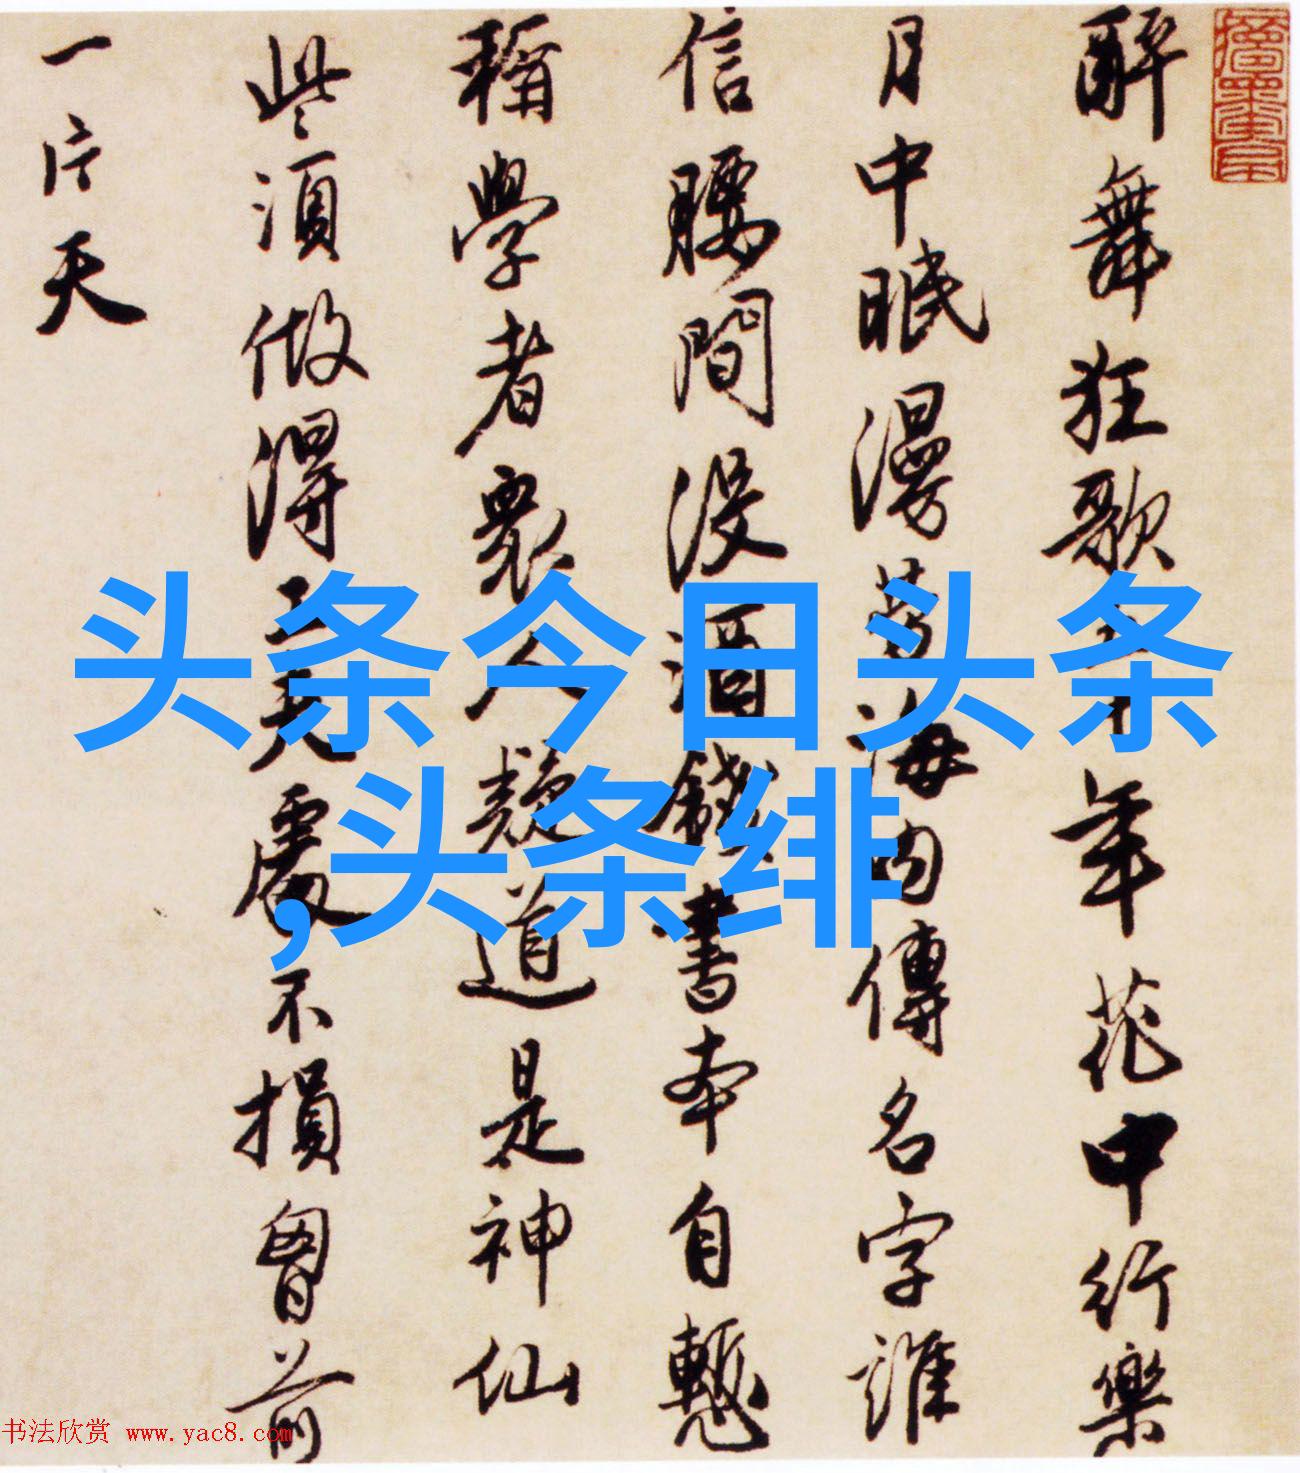 醉舞狂歌五十年花中行樂
月中眠漫勞海內傳名字誰
信腰間沒酒錢書本自慙
稱學者衆人疑道是神仙
些須做得工夫處不損胷前
一片天
头条今日头条
,头条绯
书法欣赏 www.yac8.com